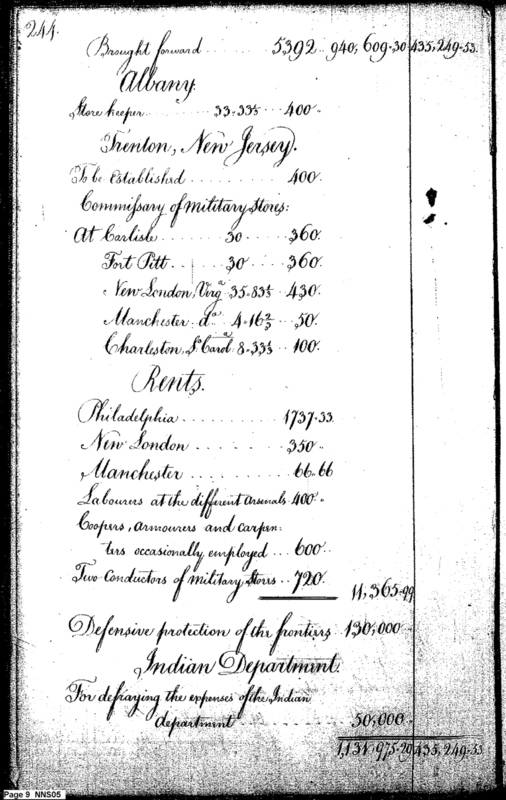 244.
Brought forward ........ 5392 .. 940,609.30 435,249.53.
Albany.
Store keeper ........ 33.33⅓ .... 400 ..
Trenton, New Jersey.
To be Established ........ 400.
Commissary of Military Stores:
At Carlisle ....... 30 ..... 360.
Fort Pitt ..... 30 ..... 360.
New London, Virgᵃ 35.83⅓ .. 430.
Manchester. dᵒ 4.16⅔ ... 50.
Charleston, Sᵒ Carolᵃ 8.33⅓ .. 100.
Rents.
Philadelphia ........... 1737.33.
New London ......... 350 ..
Manchester .......... 66.66
Labourers at the different Arsenals 400 ..
Coopers, armourers and carpen:
ters occasionally employed ... 600 ..
Two Conductors of Military Stores .. 720.
11,365.99
Defensive protection of the frontiers .. 130,000 ..
Indian Department.
For defraying the expenses of the Indian
department ........... 50,000 ..
1,131,975.29 435,249.53
Page 9 NNS05